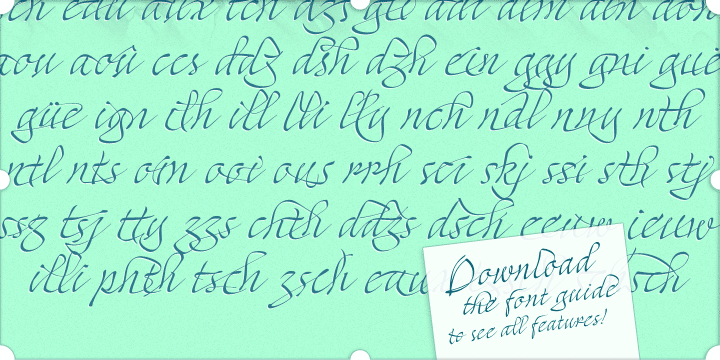 eau aux tch dzs gli dal dem den don
aou aoû ccs ddz dsh dzh ein ggy gni gue
güe ign ith ill lli lly nch ndl nny nth
ntl nts oin ooi ous rrh sci skj ssi sth stj
ssz tsj tty zzs chth ddzs dsch eeuw ieuw
illi phth tsch zsch eau sch
Download
the font guide
to see all features!